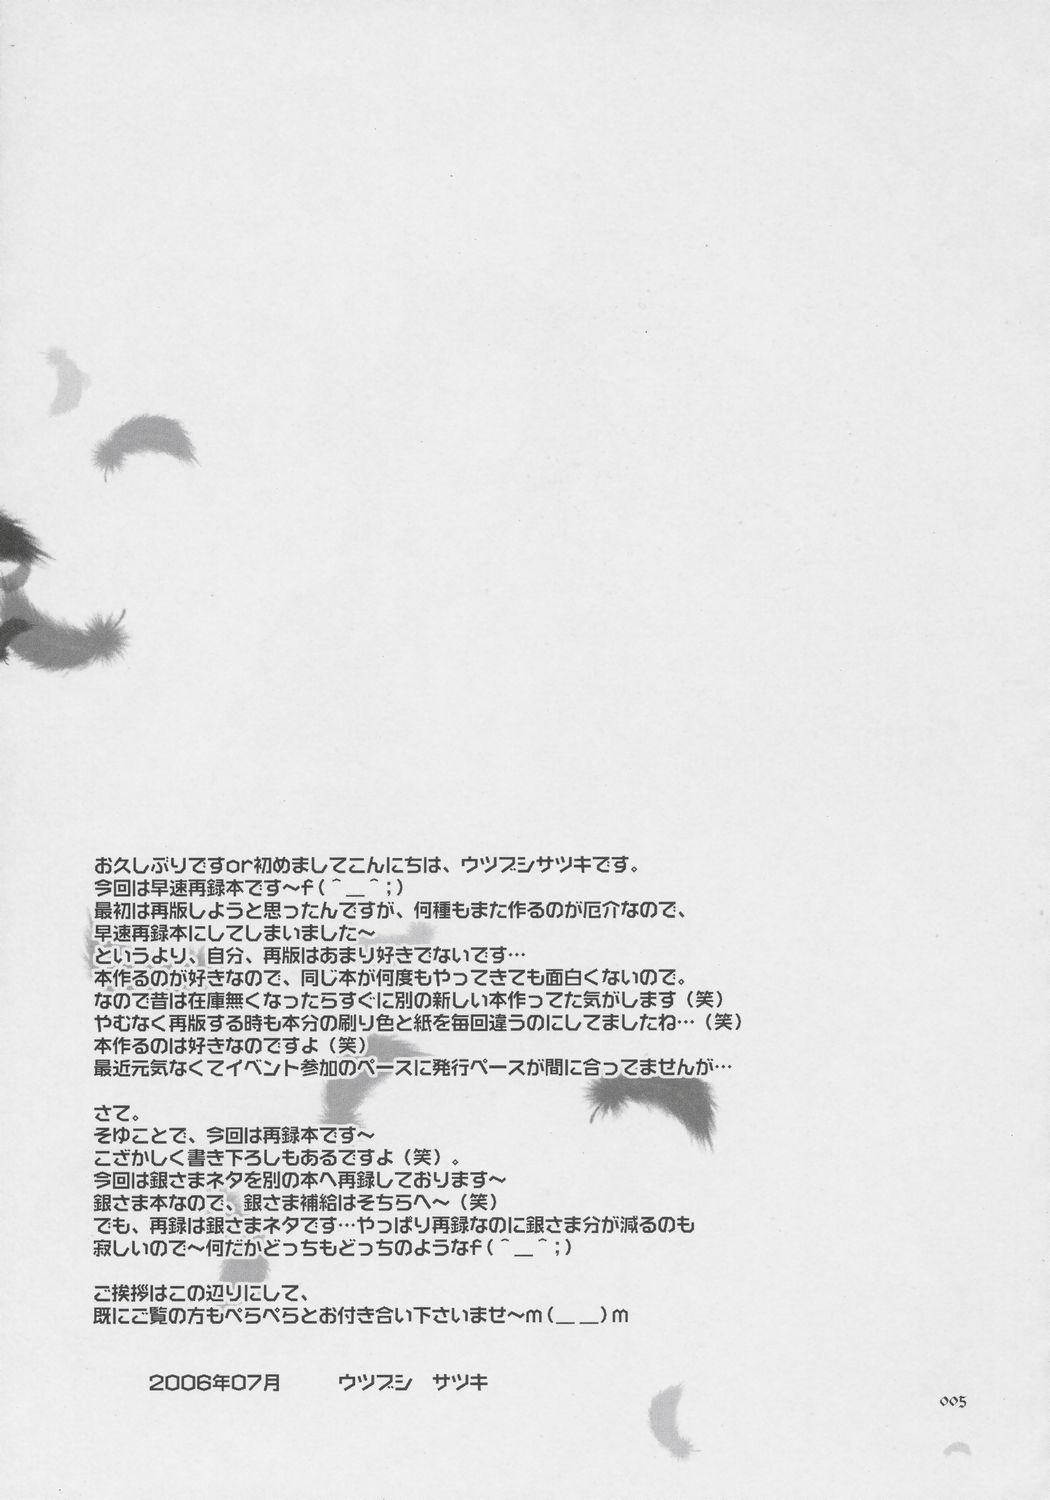 お久しぶりですor初めましてこんにちは、ウツブシサツキです。
今回は早速再録本です～f(＾＿＾;)
最初は再版しようと思ったんですが、何種もまた作るのが厄介なので、
早速再録本にしてしまいました～
というより、自分、再版はあまり好きでないです…
本作るのが好きなので、同じ本が何度もやってきても面白くないので。
なので昔は在庫無くなったらすぐに別の新しい本作ってた気がします（笑）
やむなく再版する時も本分の刷り色と紙を毎回違うのにしてましたね…（笑）
本作るのは好きなのですよ（笑）
最近元気なくてイベント参加のペースに発行ペースが間に合ってませんが…
さて。
そゆことで、今回は再録本です～
こざかしく書き下ろしもあるですよ（笑）。
今回は銀さまネタを別の本へ再録しております～
銀さま本なので、銀さま補給はそちらへ～（笑）
でも、再録は銀さまネタです…やっぱり再録なのに銀さま分が減るのも
寂しいので～何だかどっちもどっちのようなf(＾＿＾;)
ご挨拶はこの辺りにして、
既にご覧の方もぺらぺらとお付き合い下さいませ～m(＿ ＿)m
2006年07月　　　ウツブシ　サツキ
005